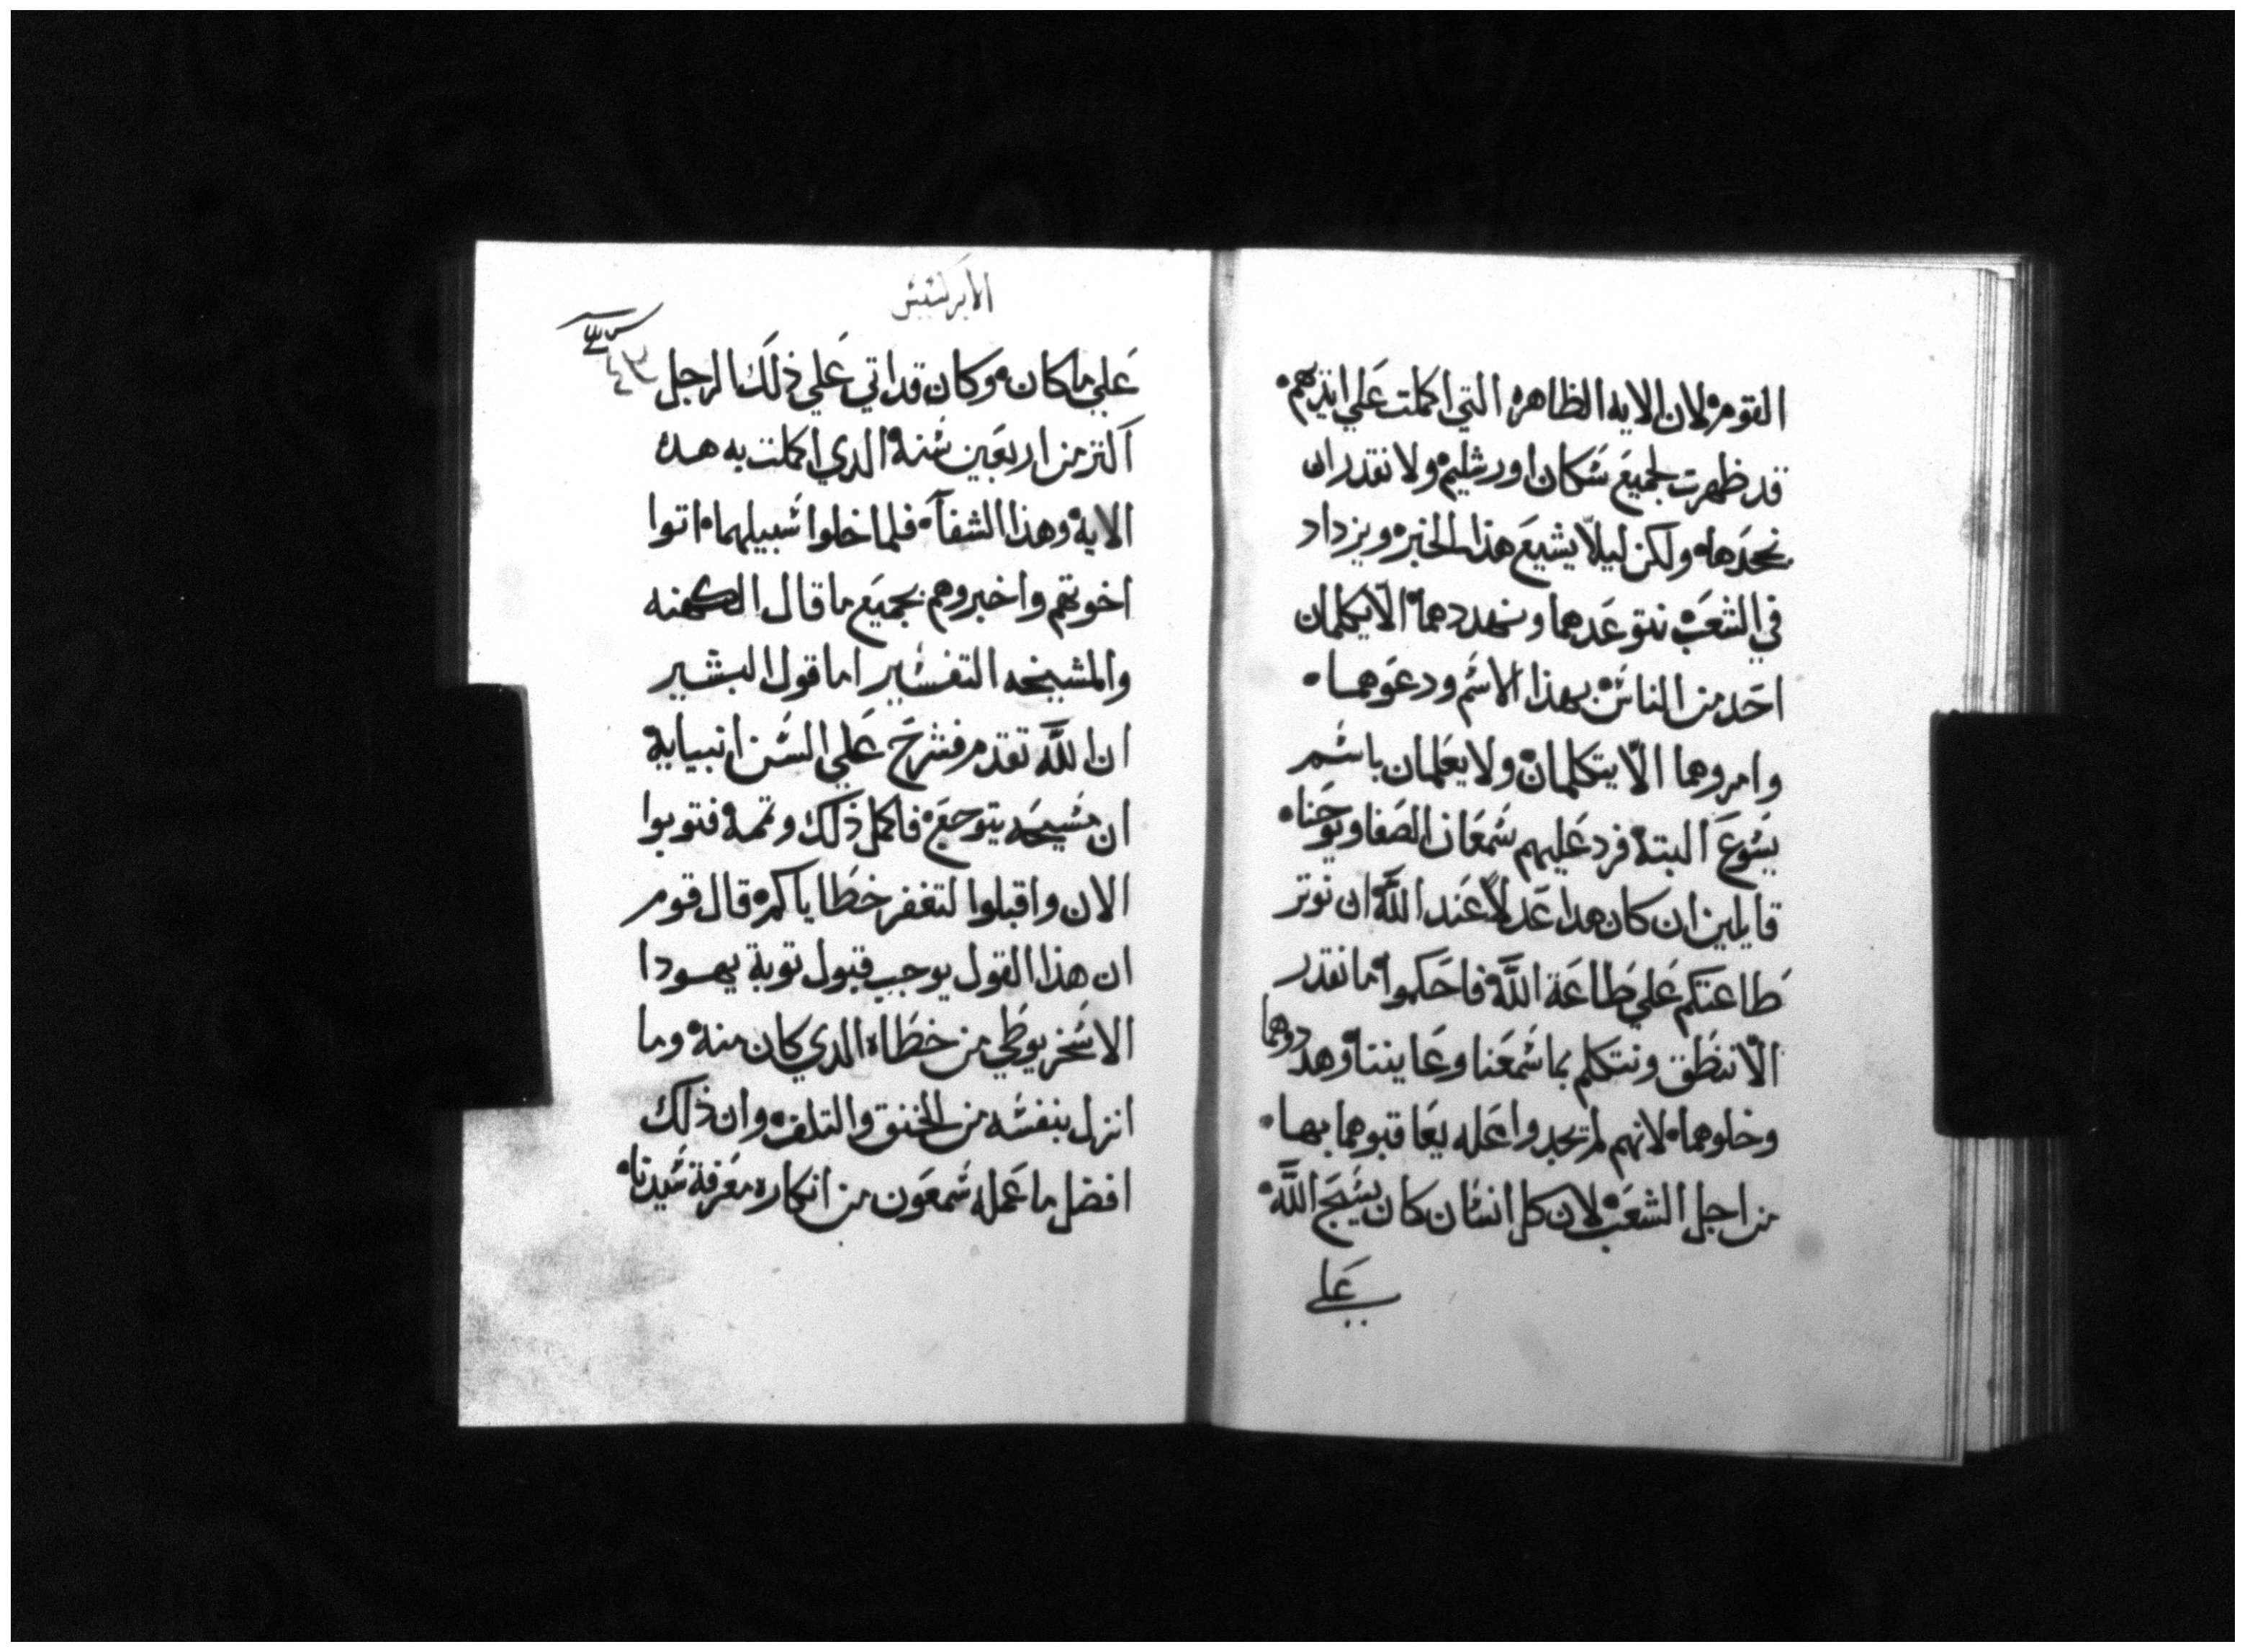 القوم لان الايه الظاهره التي اكملت علي ايديهم
قد ظهرت لجميع سكان اورشليم ولا نقدر ان
نجحدها ولكن ليلا يشيع هذا الخبر ويزداد
في الشعب نتوعدهما ونهددهما الا يكلمان
احد من الناس بهذا الاسم ودعوهما
وامروهما الا يتكلمان ولا يعلمان باسم
يسوع البتة فرد عليهم شمعان الصفا ويوحنا
قايلين ان كان هدا عدلا عند الله ان نوتر
طاعتكم علي طاعة الله فاحكموا ما نقدر
الا ننطق ونتكلم بما سمعنا وعاينا وهددوهما
وخلوهما لانهم لم يجدوا عله يعاقبوهما بها
من اجل الشعب لان كل انسان كان يسبح الله
علي
الابركسيس
علي ما كان وكان قد اتي علي ذلك الرجل
اكتر من اربعين سنة الدي اكملت به هده
الاية وهذا الشفآ فلما خلوا سبيلهما اتوا
اخوتهم واخبروهم بجميع ما قال الكهنه
والمشيخه التفسير اما قول البشير
ان الله تقدم فشرح علي السن انبيايه
ان مسيحه يتوجع فاكمل ذلك وتمه فتوبوا
الان واقبلوا لتغفر خطاياكم قال قوم
ان هذا القول يوجب قبول توبة يهودا
الاسخريوطي من خطاه الدي كان منه وما
انزل بنفسه من الخنق والتلف وان ذلك
افضل ما عمله شمعون من انكاره معرفة سيدنا